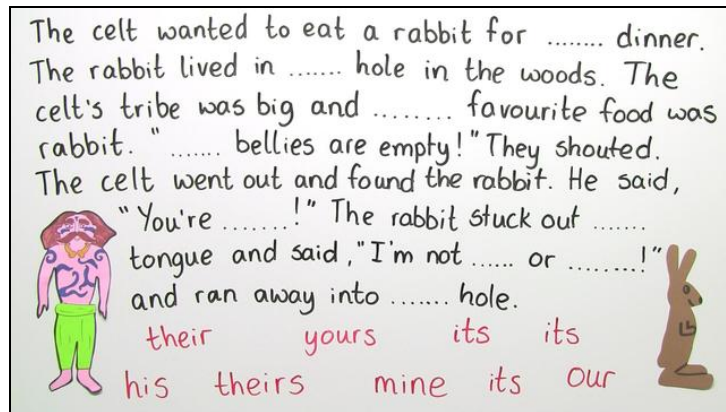 The celt wanted to eat a rabbit for ........ dinner.
The rabbit lived in ....... hole in the woods. The
celt's tribe was big and ........ favourite food was
rabbit. " ....... bellies are empty!" They shouted.
The celt went out and found the rabbit. He said,
"You're .......!" The rabbit stuck out .......
tongue and said, "I'm not ...... or ........!"
and ran away into ....... hole.
their yours its its
his theirs mine its our